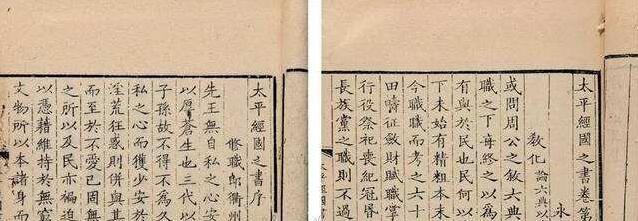 太平經國之書序
修職郎衢州
先王無自私之心安
以厚蒼生也三代以
子孫故不得不為久
私之心而獲少安於
淫荒狂惑則併與其
而至於不愛已周
之所以及民亦褊迫
以憑藉維持於無窮
文物所以本諸身而
太平經國之書卷第
永
教化 論六典
或問周公之敘六典
職之下每終之以為
有與於民也民何以
下未始有精粗本末
今職職而考之六十
田疇征斂財賦職貢
行役祭祀喪紀冠昏
長族黨之職則不過